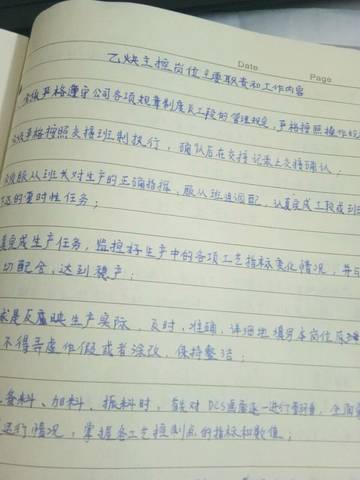 乙炔主控岗位主要职责和工作内容
Date
Page
严格遵守公司各项规章制度及工段的管理规定，严格按照操作规
严格按照交接班制执行，确认后在交接记录上交接确认；
服从班长对生产的正确指挥，服从班组调配，认真完成工段或班
的临时性任务；
完成生产任务，监控好生产中的各项工艺指标变化情况，并与
切配合，达到稳产；
求是反应映生产实际，及时，准确，详细地填写本岗位原
不得弄虚作假或者涂改，保持整洁；
备料、加料、振料时，对DCS画面逐一进行
运行情况，掌握各工艺控制点的指标和数值；